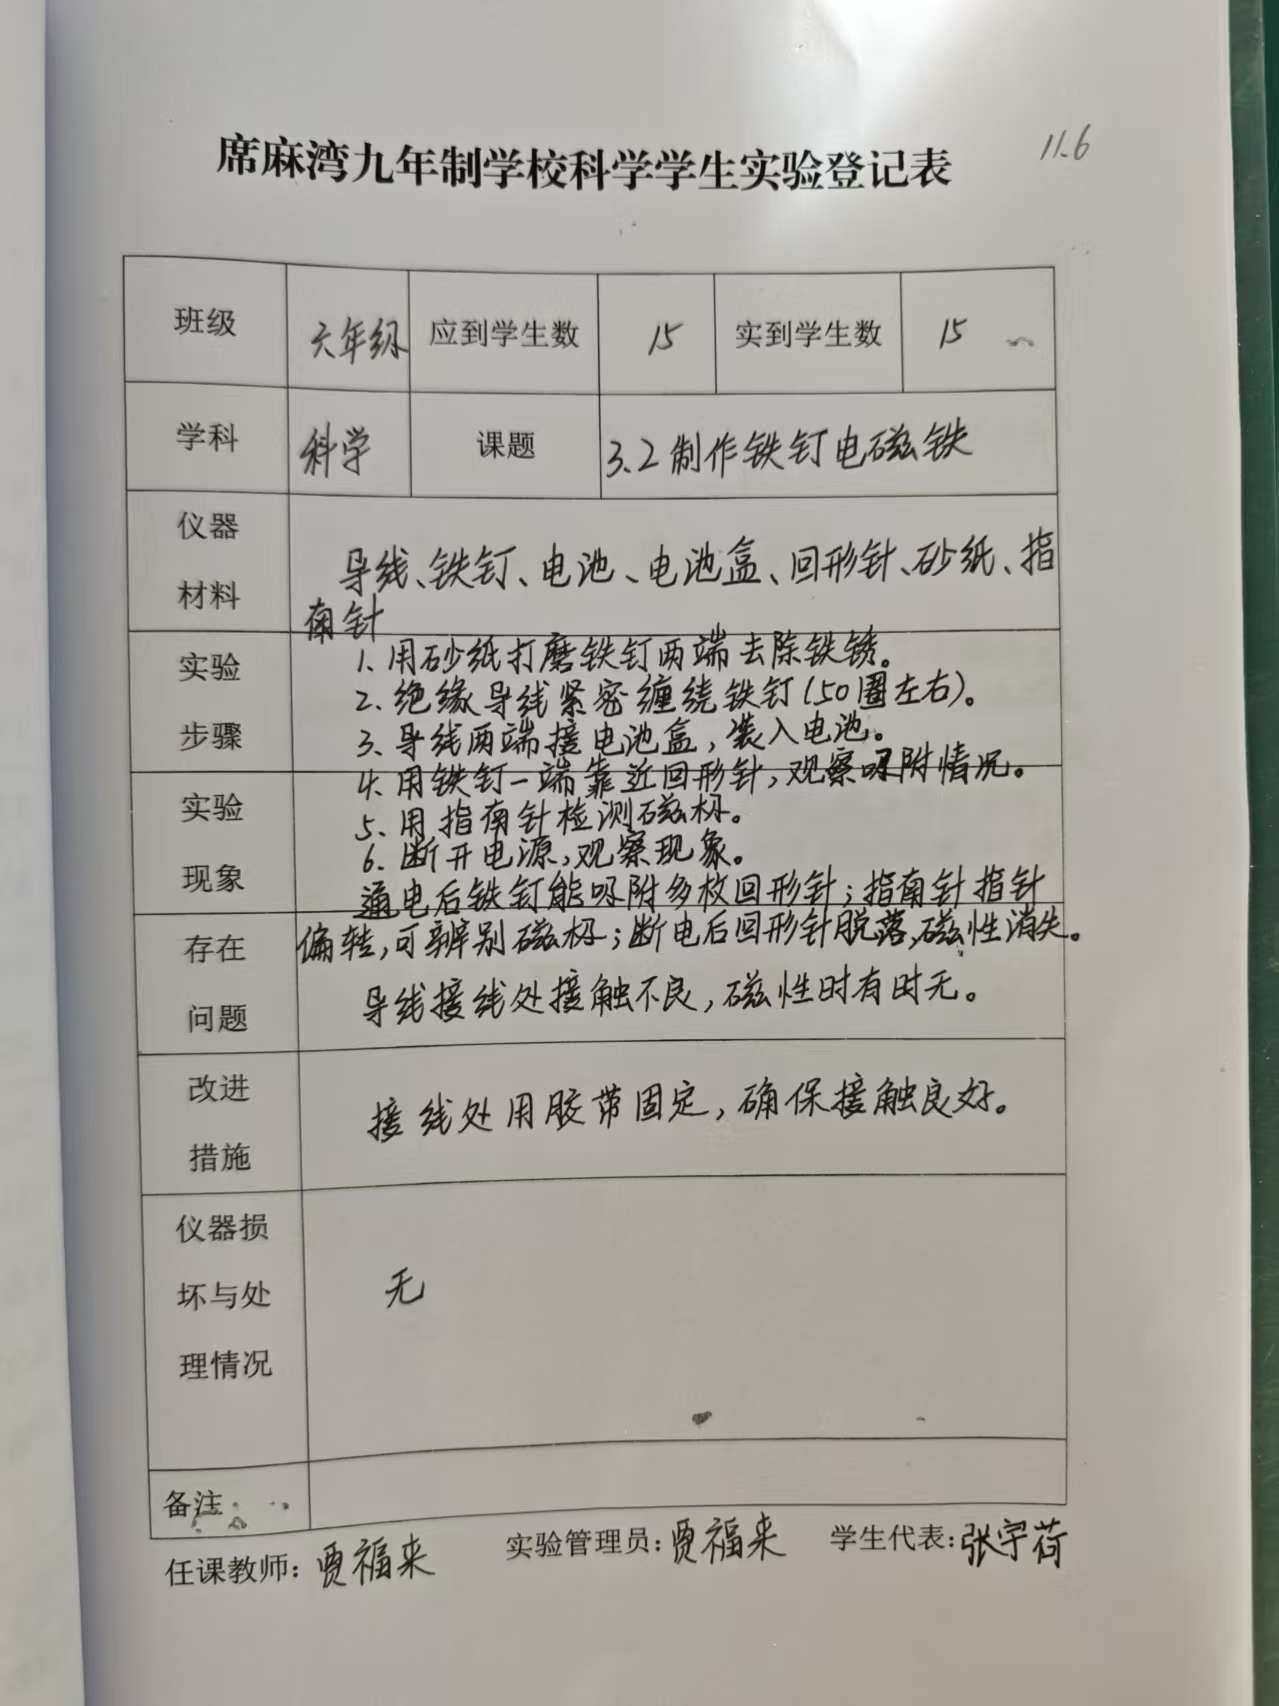 11.6
席麻湾九年制学校科学学生实验登记表
班级 六年级 应到学生数 15 实到学生数 15
学科 科学 课题 3.2制作铁钉电磁铁
仪器
材料
导线、铁钉、电池、电池盒、回形针、砂纸、指
南针
实验
步骤
1、用砂纸打磨铁钉两端去除铁锈。
2、绝缘导线紧密缠绕铁钉(50圈左右)。
3、导线两端接电池盒，装入电池。
4、用铁钉一端靠近回形针，观察吸附情况。
实验
现象
5、用指南针检测磁极。
6、断开电源，观察现象。
通电后铁钉能吸附多枚回形针；指南针指针
偏转，可辨别磁极；断电后回形针脱落，磁性消失。
存在
问题
导线接线处接触不良，磁性时有时无。
改进
措施
接线处用胶带固定，确保接触良好。
仪器损
坏与处
理情况
无
备注
任课教师：贾福来 实验管理员：贾福来 学生代表：张宇荷